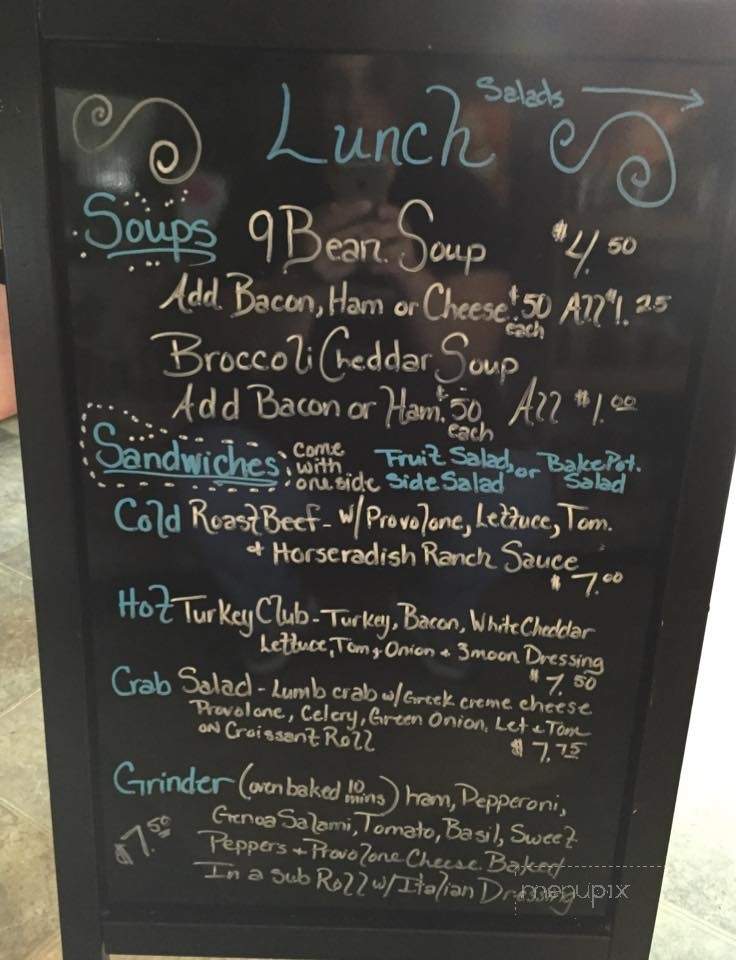 Salads →
Lunch
Soups 9 Bean Soup $4.50
Add Bacon, Ham or Cheese $.50 each All $1.25
Broccoli Cheddar Soup
Add Bacon or Ham $.50 each All $1.00
Sandwiches come with one side Fruit Salad, or BakePot. Salad
Side Salad
Cold Roast Beef - w/Provolone, Lettuce, Tom.
+ Horseradish Ranch Sauce
$7.00
Hot Turkey Club - Turkey, Bacon, White Cheddar
Lettuce, Tom + Onion + 3moon Dressing
$7.50
Crab Salad - Lumb crab w/Greek creme cheese
Provolone, Celery, Green Onion, Let + Tom
on Croissant Roll
$7.75
Grinder (oven baked 10 mins) Ham, Pepperoni,
Genoa Salami, Tomato, Basil, Sweet
$7.50 Peppers + Provolone Cheese Baked
In a sub Roll w/Italian Dressing
menupix